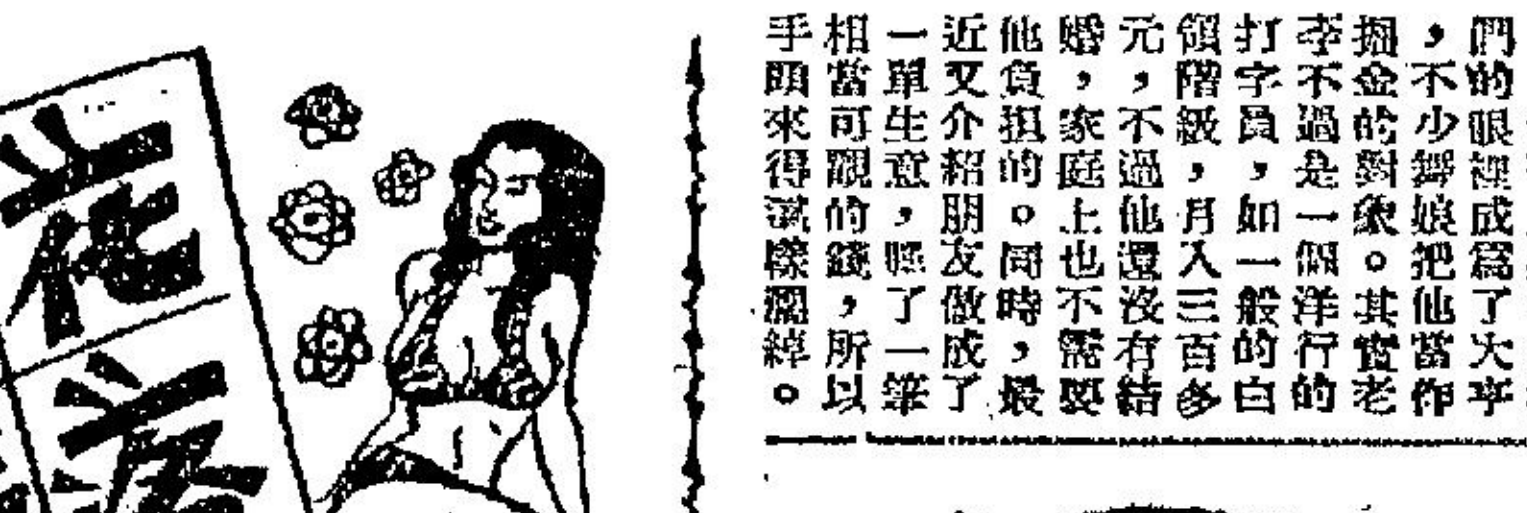 們的眼裡成爲了大亨
，不少舞娘把他當作
掘金的對象。其實老
李不過是一個洋行的
打字員，如一般的白
領階級，月入三百多
元，不過他還沒有結
婚，家庭上也不需要
他負担的。同時，最
近又介紹朋友做成了
一單生意，賺了一筆
相當可觀的錢，所以
手頭來得樣濶綽。
花